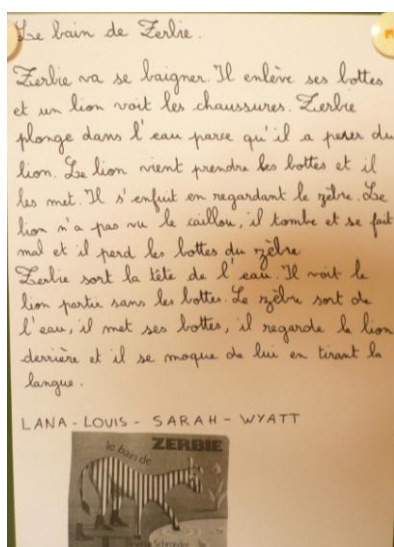 Le bain de Zerbie.
Zerbie va se baigner. Il enlève ses bottes
et un lion voit les chaussures. Zerbie
plonge dans l'eau parce qu'il a peur du
lion. Le lion vient prendre les bottes et il
les met. Il s'enfuit en regardant le zèbre. Le
lion n'a pas vu le caillou, il tombe et se fait
mal et il perd les bottes du zèbre
Zerbie sort la tête de l'eau. Il voit le
lion partir sans les bottes. Le zèbre sort de
l'eau, il met ses bottes, il regarde le lion
derrière et il se moque de lui en tirant la
langue.
LANA - LOUIS - SARAH - WYATT
le bain de ZERBIE
Schroeder